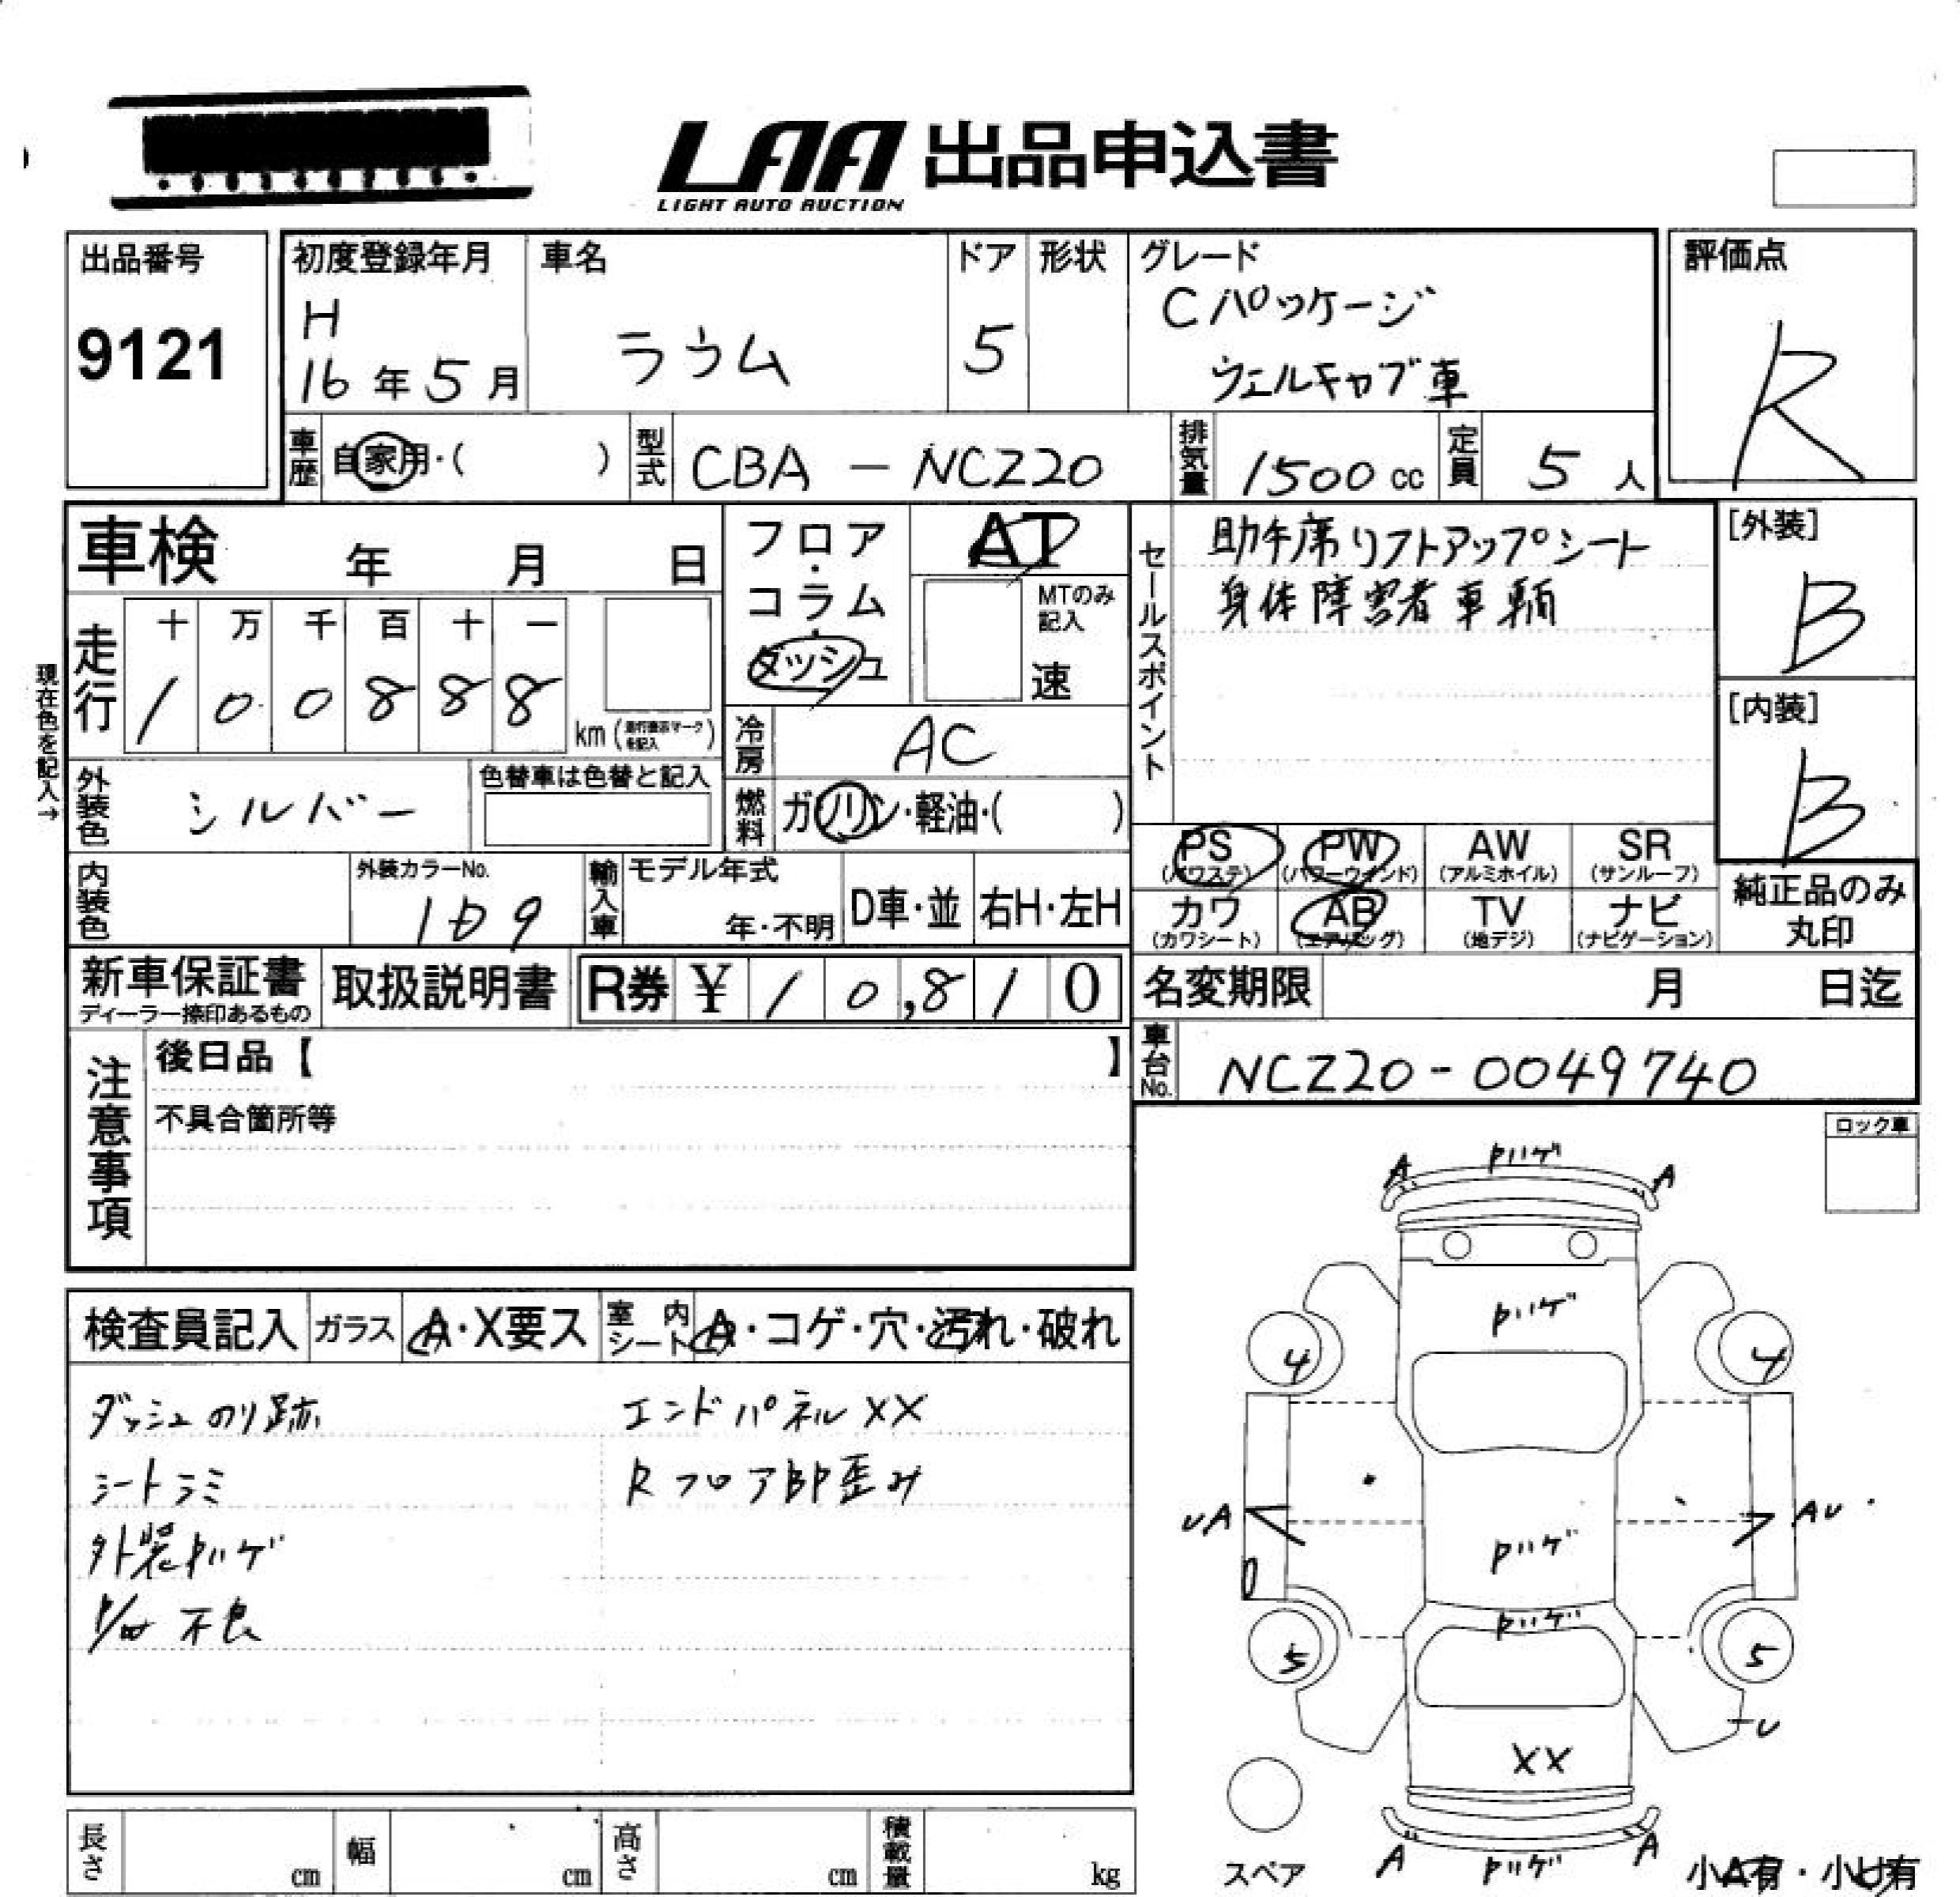 LAA 出品申込書
LIGHT AUTO AUCTION
出品番号
9121
初度登録年月
H
16年5月
車名
ラウム
ドア
5
形状
グレード
Cパッケージ
ウェルキャブ車
評価点
R
車歴
自家用・( )
型式
CBA-NCZ20
排気量
1500cc
定員
5人
車検 年 月 日
走行
十 万 千 百 十 一
1 0 0 8 8 8
km(走行表示マークを記入)
現在色を記入→
外装色
シルバー
色替車は色替と記入
内装色
外装カラーNo.
1D9
輸入車
モデル年式
年・不明
D車・並
右H・左H
フロア・コラム・ダッシュ
AT
MTのみ記入
速
冷房
AC
燃料
ガソリン・軽油・( )
セールスポイント
助手席リフトアップシート
身体障害者車輌
[外装]
B
[内装]
B
PS
(パワステ)
PW
(パワーウインド)
AW
(アルミホイル)
SR
(サンルーフ)
カワ
(カワシート)
AB
(エアバッグ)
TV
(地デジ)
ナビ
(ナビゲーション)
純正品のみ
丸印
新車保証書
ディーラー捺印あるもの
取扱説明書
R券 ¥ 10,810
名変期限 月 日迄
車台No.
NCZ20-0049740
注意事項
後日品【 】
不具合箇所等
ロック車
検査員記入
ガラス
A・X要ス
室内シート
A・コゲ・穴・汚れ・破れ
ダッシュのり跡
エンドパネルXX
シートシミ
Rフロア部歪み
外装ハゲ
不良
A
ハゲ
A
ハゲ
4
4
UA
AU
ハゲ
ハゲ
5
5
U
XX
A
ハゲ
A
スペア
小A有・小U有
長さ cm
幅 cm
高さ cm
積載量 kg